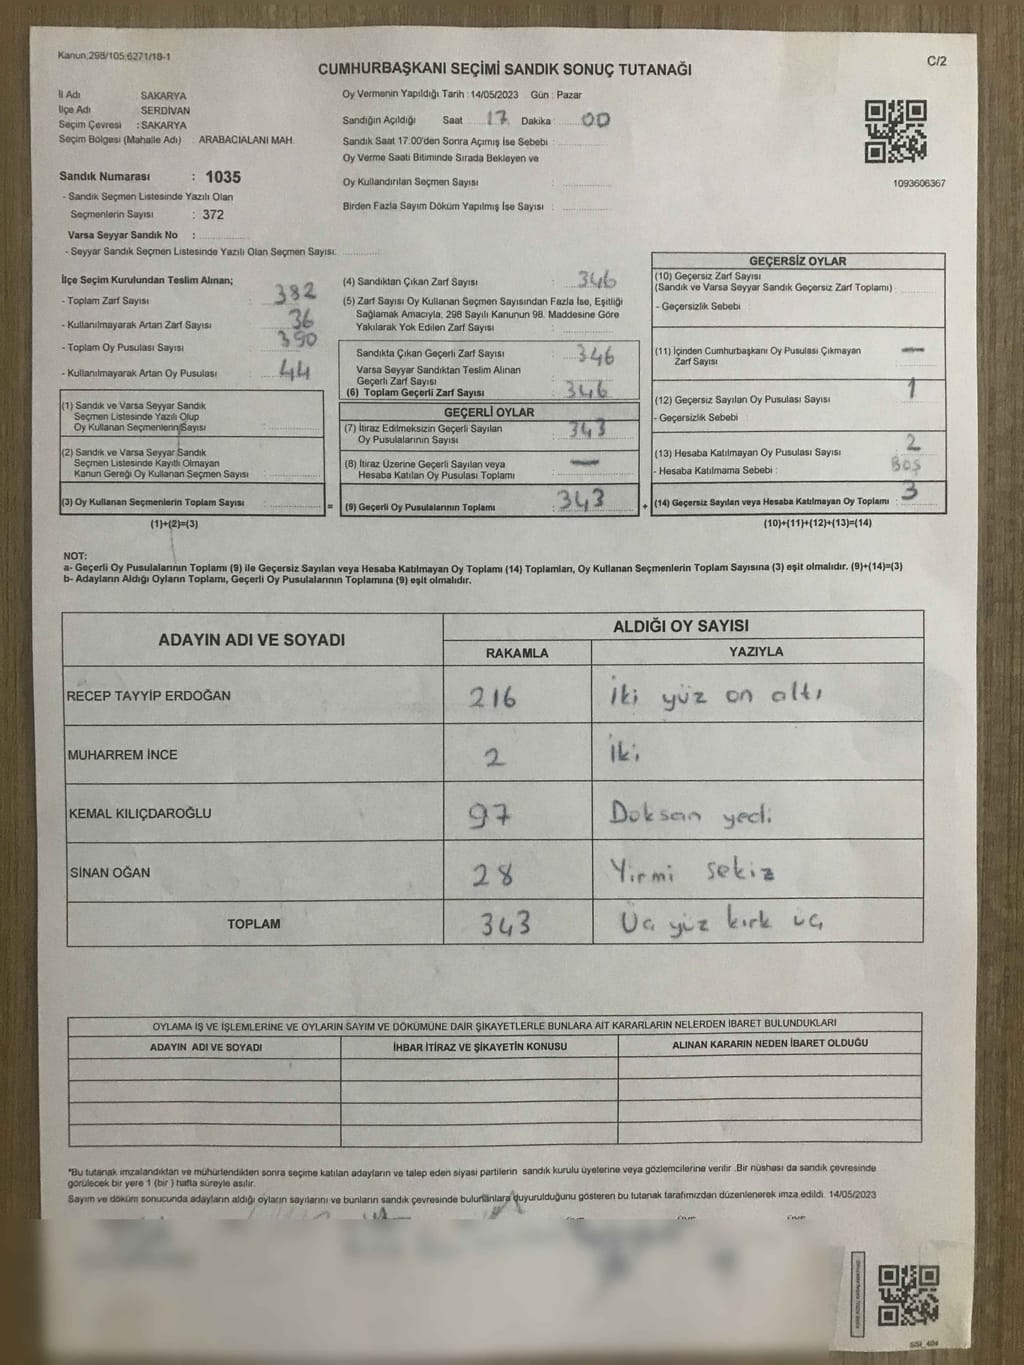 Kanun;298/105;6271/18-1
C/2
CUMHURBAŞKANI SEÇİMİ SANDIK SONUÇ TUTANAĞI
İl Adı SAKARYA
İlçe Adı SERDİVAN
Seçim Çevresi : SAKARYA
Seçim Bölgesi (Mahalle Adı) : ARABACIALANI MAH.
Sandık Numarası : 1035
- Sandık Seçmen Listesinde Yazılı Olan
Seçmenlerin Sayısı : 372
Varsa Seyyar Sandık No :
- Seyyar Sandık Seçmen Listesinde Yazılı Olan Seçmen Sayısı:
Oy Vermenin Yapıldığı Tarih : 14/05/2023 Gün : Pazar
Sandığın Açıldığı Saat 17 Dakika 00
Sandık Saat 17.00'den Sonra Açımış İse Sebebi :
Oy Verme Saati Bitiminde Sırada Bekleyen ve
Oy Kullandırılan Seçmen Sayısı :
Birden Fazla Sayım Döküm Yapılmış İse Sayısı :
1093606367
İlçe Seçim Kurulundan Teslim Alınan;
- Toplam Zarf Sayısı 382
- Kullanılmayarak Artan Zarf Sayısı 36
- Toplam Oy Pusulası Sayısı 390
- Kullanılmayarak Artan Oy Pusulası 44
(1) Sandık ve Varsa Seyyar Sandık
Seçmen Listesinde Yazılı Olup
Oy Kullanan Seçmenlerin Sayısı
(2) Sandık ve Varsa Seyyar Sandık
Seçmen Listesinde Kayıtlı Olmayan
Kanun Gereği Oy Kullanan Seçmen Sayısı
(3) Oy Kullanan Seçmenlerin Toplam Sayısı
=
(1)+(2)=(3)
(4) Sandıktan Çıkan Zarf Sayısı : 346
(5) Zarf Sayısı Oy Kullanan Seçmen Sayısından Fazla İse, Eşitliği
Sağlamak Amacıyla; 298 Sayılı Kanunun 98. Maddesine Göre
Yakılarak Yok Edilen Zarf Sayısı :
Sandıkta Çıkan Geçerli Zarf Sayısı : 346
Varsa Seyyar Sandıktan Teslim Alınan
Geçerli Zarf Sayısı
(6) Toplam Geçerli Zarf Sayısı : 346
GEÇERLİ OYLAR
(7) İtiraz Edilmeksizin Geçerli Sayılan
Oy Pusulalarının Sayısı : 343
(8) İtiraz Üzerine Geçerli Sayılan veya
Hesaba Katılan Oy Pusulası Toplamı : —
(9) Geçerli Oy Pusulalarının Toplamı : 343
+
GEÇERSİZ OYLAR
(10) Geçersiz Zarf Sayısı
(Sandık ve Varsa Seyyar Sandık Geçersiz Zarf Toplamı) :
- Geçersizlik Sebebi :
(11) İçinden Cumhurbaşkanı Oy Pusulası Çıkmayan
Zarf Sayısı —
(12) Geçersiz Sayılan Oy Pusulası Sayısı : 1
- Geçersizlik Sebebi :
(13) Hesaba Katılmayan Oy Pusulası Sayısı : 2
- Hesaba Katılmama Sebebi : BOŞ
(14) Geçersiz Sayılan veya Hesaba Katılmayan Oy Toplamı : 3
(10)+(11)+(12)+(13)=(14)
NOT:
a- Geçerli Oy Pusulalarının Toplamı (9) ile Geçersiz Sayılan veya Hesaba Katılmayan Oy Toplamı (14) Toplamları, Oy Kullanan Seçmenlerin Toplam Sayısına (3) eşit olmalıdır. (9)+(14)=(3)
b- Adayların Aldığı Oyların Toplamı, Geçerli Oy Pusulalarının Toplamına (9) eşit olmalıdır.
ADAYIN ADI VE SOYADI ALDIĞI OY SAYISI
RAKAMLA YAZIYLA
RECEP TAYYİP ERDOĞAN 216 İki yüz on altı
MUHARREM İNCE 2 İki
KEMAL KILIÇDAROĞLU 97 Doksan yedi
SİNAN OĞAN 28 Yirmi sekiz
TOPLAM 343 Üç yüz kırk üç
OYLAMA İŞ VE İŞLEMLERİNE VE OYLARIN SAYIM VE DÖKÜMÜNE DAİR ŞİKAYETLERLE BUNLARA AİT KARARLARIN NELERDEN İBARET BULUNDUKLARI
ADAYIN ADI VE SOYADI İHBAR İTİRAZ VE ŞİKAYETİN KONUSU ALINAN KARARIN NEDEN İBARET OLDUĞU
*Bu tutanak imzalandıktan ve mühürlendikten sonra seçime katılan adayların ve talep eden siyasi partilerin sandık kurulu üyelerine veya gözlemcilerine verilir .Bir nüshası da sandık çevresinde
görülecek bir yere 1 (bir ) hafta süreyle asılır.
Sayım ve döküm sonucunda adayların aldığı oyların sayılarını ve bunların sandık çevresinde bulunanlara duyurulduğunu gösteren bu tutanak tarafımızdan düzenlenerek imza edildi. 14/05/2023